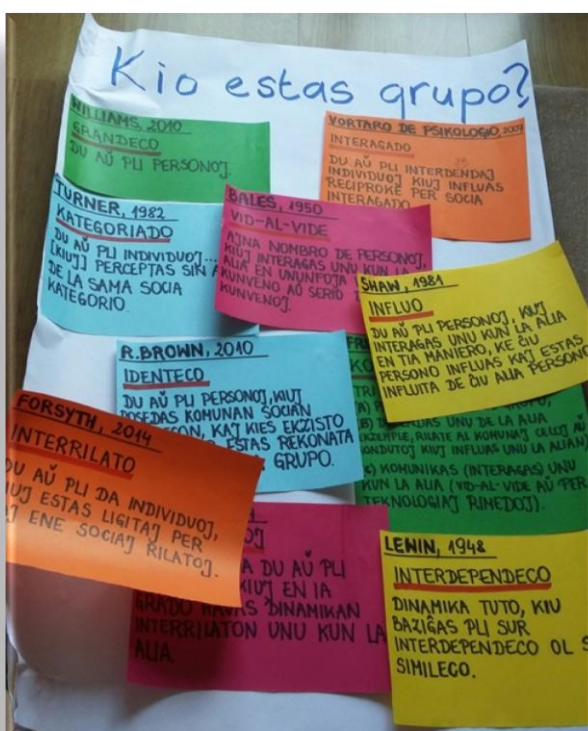 Kio estas grupo?
WILLIAMS, 2010
GRANDECO
DU AŬ PLI PERSONOJ.
VORTARO DE PSIKOLOGIO,
INTERAGADO
DU AŬ PLI INTERDENDAJ
INDIVIDUOJ KIUJ INFLUAS
RECIPROKE PER SOCIA
INTERAGADO
TURNER, 1982
KATEGORIADO
DU AŬ PLI INDIVIDUOJ...
[KIUJ] PERCEPTAS SIN
DE LA SAMA SOCIA
KATEGORIO.
BALES, 1950
VID-AL-VIDE
AJNA NOMBRO DE PERSONOJ,
KIUJ INTERAGAS UNU KUN LA
ALIA EN UNUNFOJA
KUNVENO AŬ SERIO
KUNVENOJ.
SHAW, 1981
INFLUO
DU AŬ PLI PERSONOJ, KIUJ
INTERAGAS UNU KUN LA ALIA
EN TIA MANIERO, KE ĈIU
PERSONO INFLUAS KAJ ESTAS
INFLUITA DE ĈIU ALIA PERSONO
R.BROWN, 2010
IDENTECO
DU AŬ PLI PERSONOJ, KIUJ
POSEDAS KOMUNAN SOCIAN
KAJ KIES EKZISTO
ESTAS REKONATA
GRUPO.
UNU DE LA ALIA
RILATE AL KOMUNAJ CELOJ AŬ
KIUJ INFLUAS UNU LA ALIAN
(C) KOMUNIKAS (INTERAGAS) UNU
KUN LA ALIA (VID-AL-VIDE AŬ PER
TEKNOLOGIAJ RIMEDOJ).
FORSYTH, 2014
INTERRILATO
DU AŬ PLI DA INDIVIDUOJ,
KIUJ ESTAS LIGITAJ PER
ENE SOCIAJ RILATOJ.
DU AŬ PLI
KIUJ EN IA
GRADO HAVAS DINAMIKAN
INTERRILATON UNU KUN LA
ALIA.
LEWIN, 1948
INTERDEPENDECO
DINAMIKA TUTO, KIU
BAZIĜAS PLI SUR
INTERDEPENDECO OL
SIMILECO.